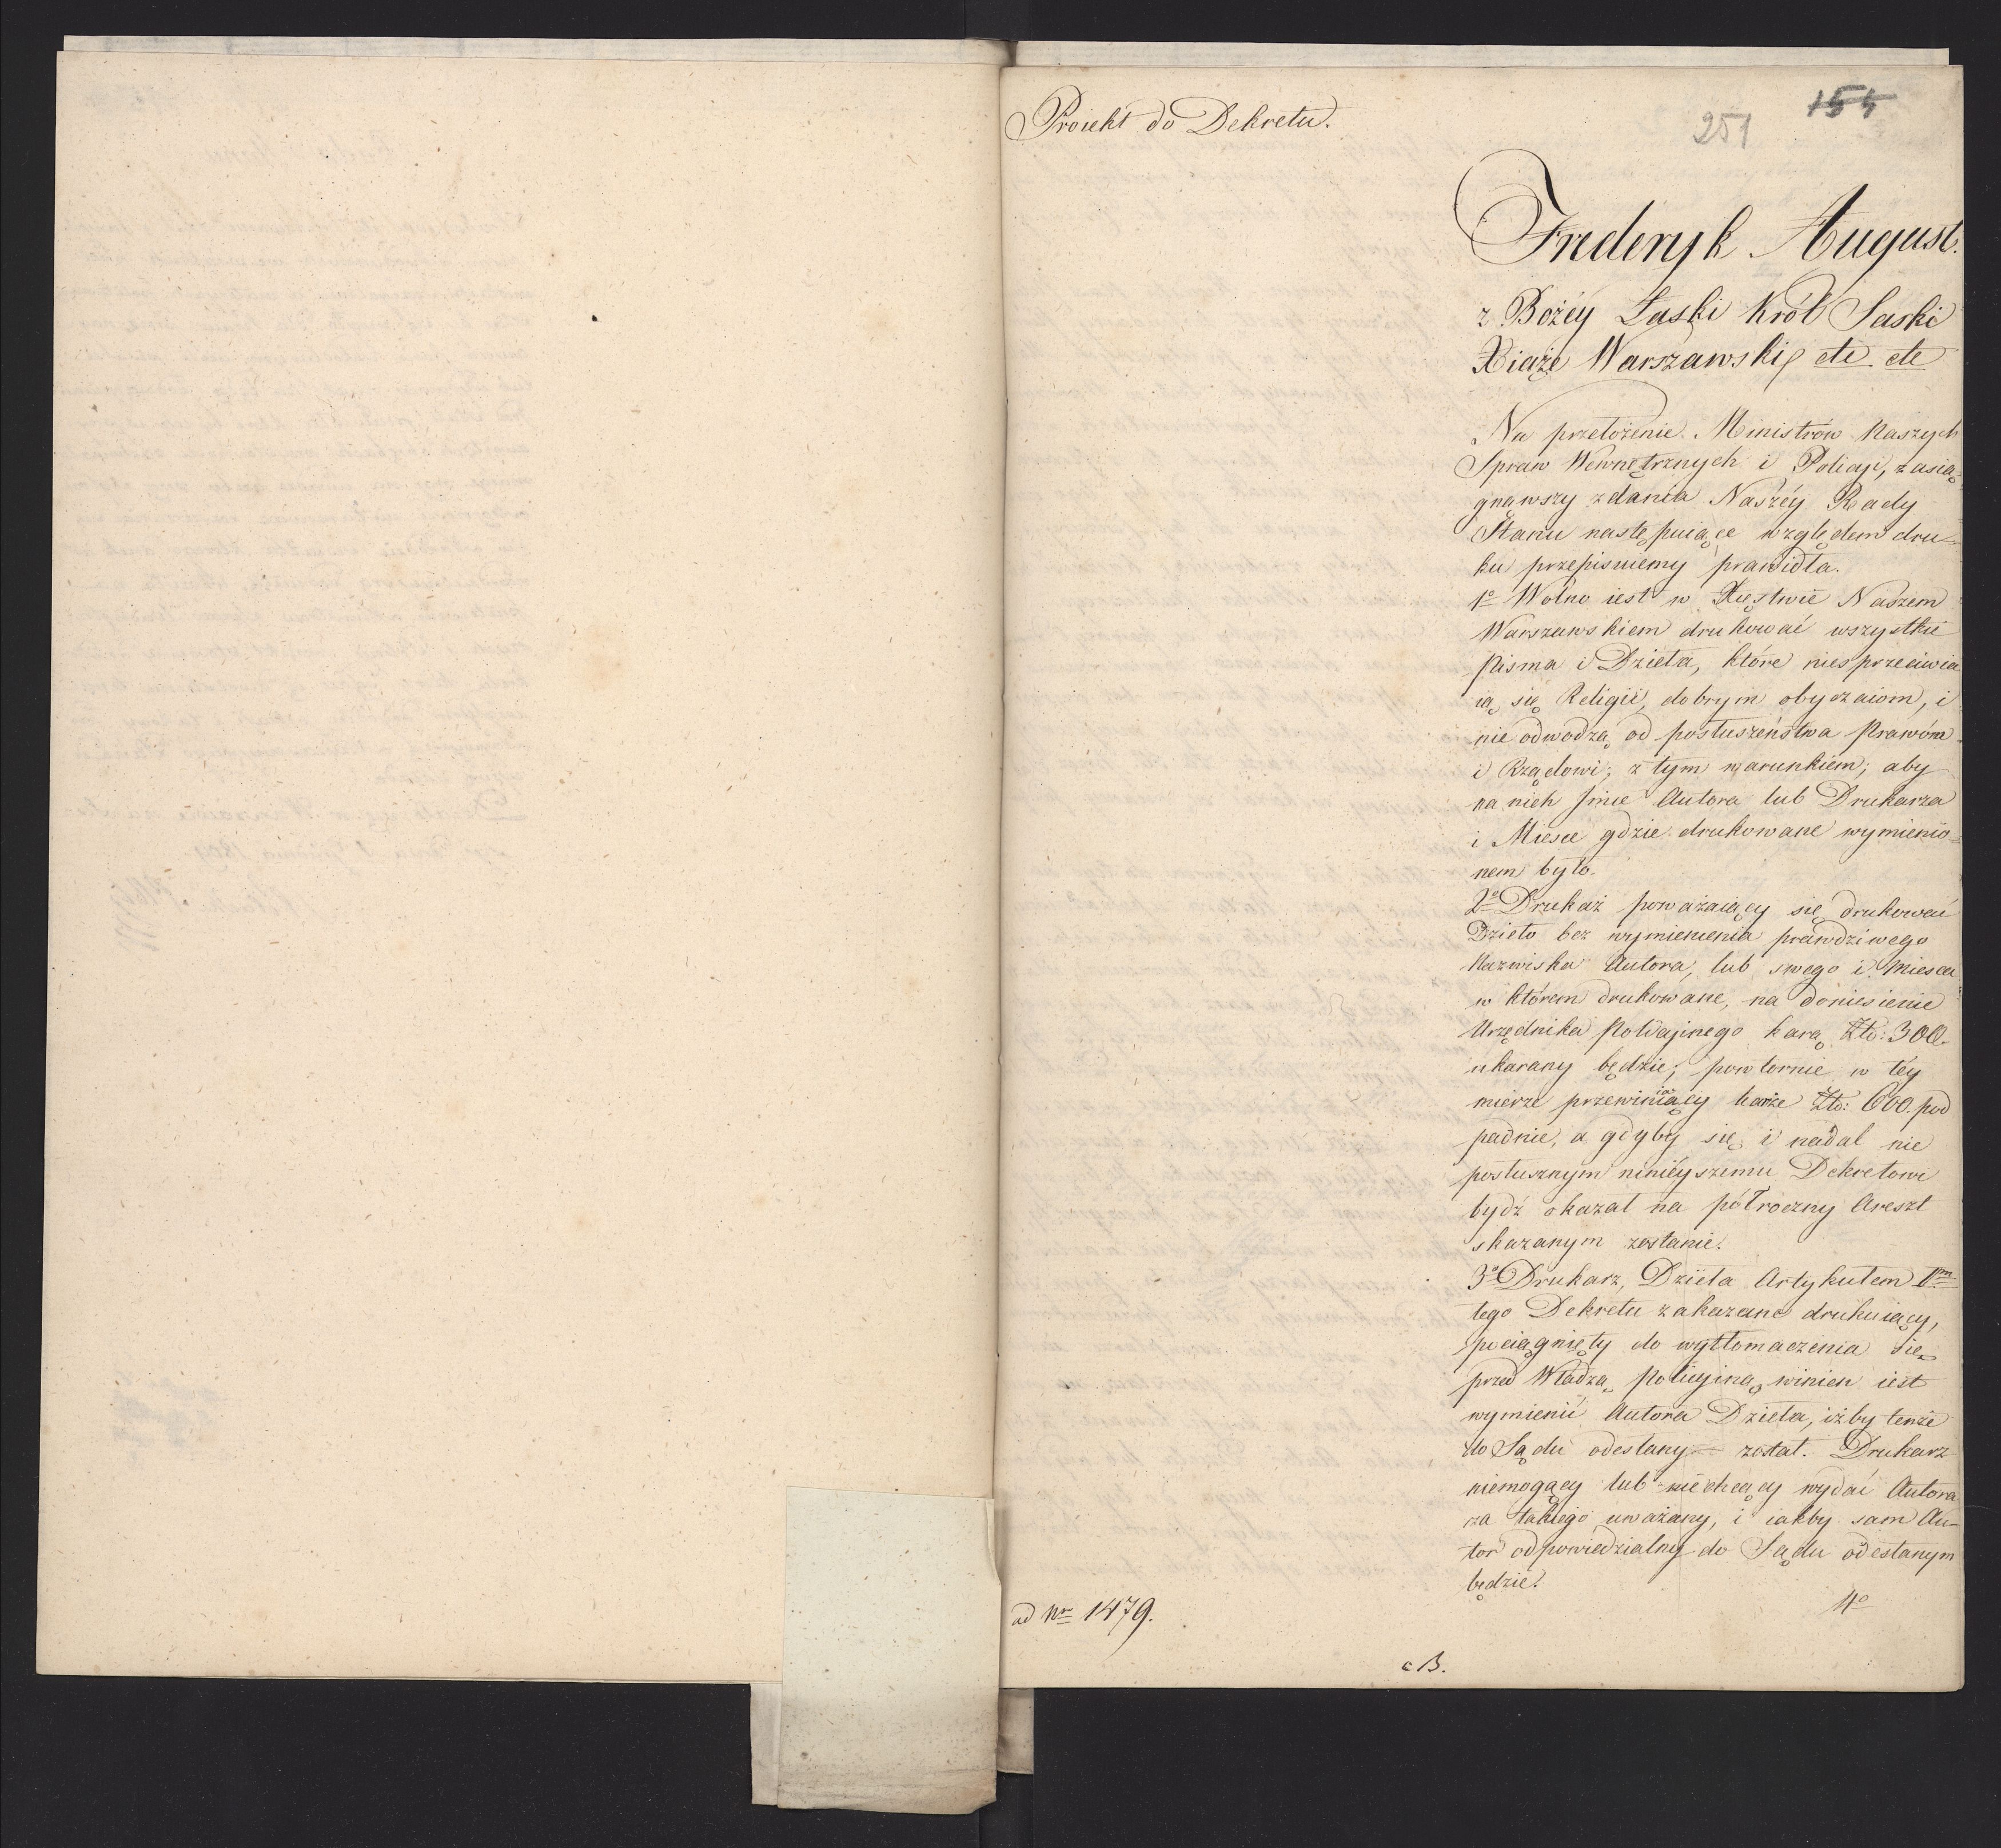 Proiekt do Dekretu.
155
251
Fryderyk August.
z Bożey Łaski Król Saski
Xiąże Warszawski etc. etc
Na przełożenie Ministrów Naszych
Spraw Wewnętrznych i Policyi, zasią=
gnąwszy zdania Naszéy Rady
Stanu następuiące względem dru=
ku przepisuiemy prawidła.
1o Wolno iest w Xięstwie Naszem
Warszawskiem drukować wszystkie
Pisma i Dzieła, które niesprzeciwia
ią się Religii, dobrym obyczaiom, i
nie odwodzą od posłuszeństwa Prawóm
i Rządowi; z tym warunkiem; aby
na nich Jmie Autora lub Drukarza
i Miesce gdzie drukowane wymienio=
nem było.
2o Drukaż poważaiący się drukować
Dzieło bez wymienienia prawdziwego
Nazwiska Autora, lub swego i Miesca
w którem drukowane, na doniesienie
Urzędnika Policyinego karą Złt: 300.
ukarany będzie; powtornie w téy
mierze przewiniaiący karze Złt: 600. pod
padnie, a gdyby się i nadal nie
posłusznym ninieyszemu Dekretowi
bydź okazał na półroczny Areszt
skazanym zostanie.
3o Drukarz, Dzieła Artykułem 1m
tego Dekretu zakazane drukuiący,
pociągnięty do wytłomaczenia się
przed Władzą Policyiną winien iest
wymienić Autora Dzieła, iżby tenże
do Sądu odesłany został. Drukarz
niemogący lub niechcący wydać Autora
za takiego uważany, i iakby sam Au=
tor odpowiedzialny do Sądu odesłanym
będzie.
4o
ad Nr 1479.
c B.